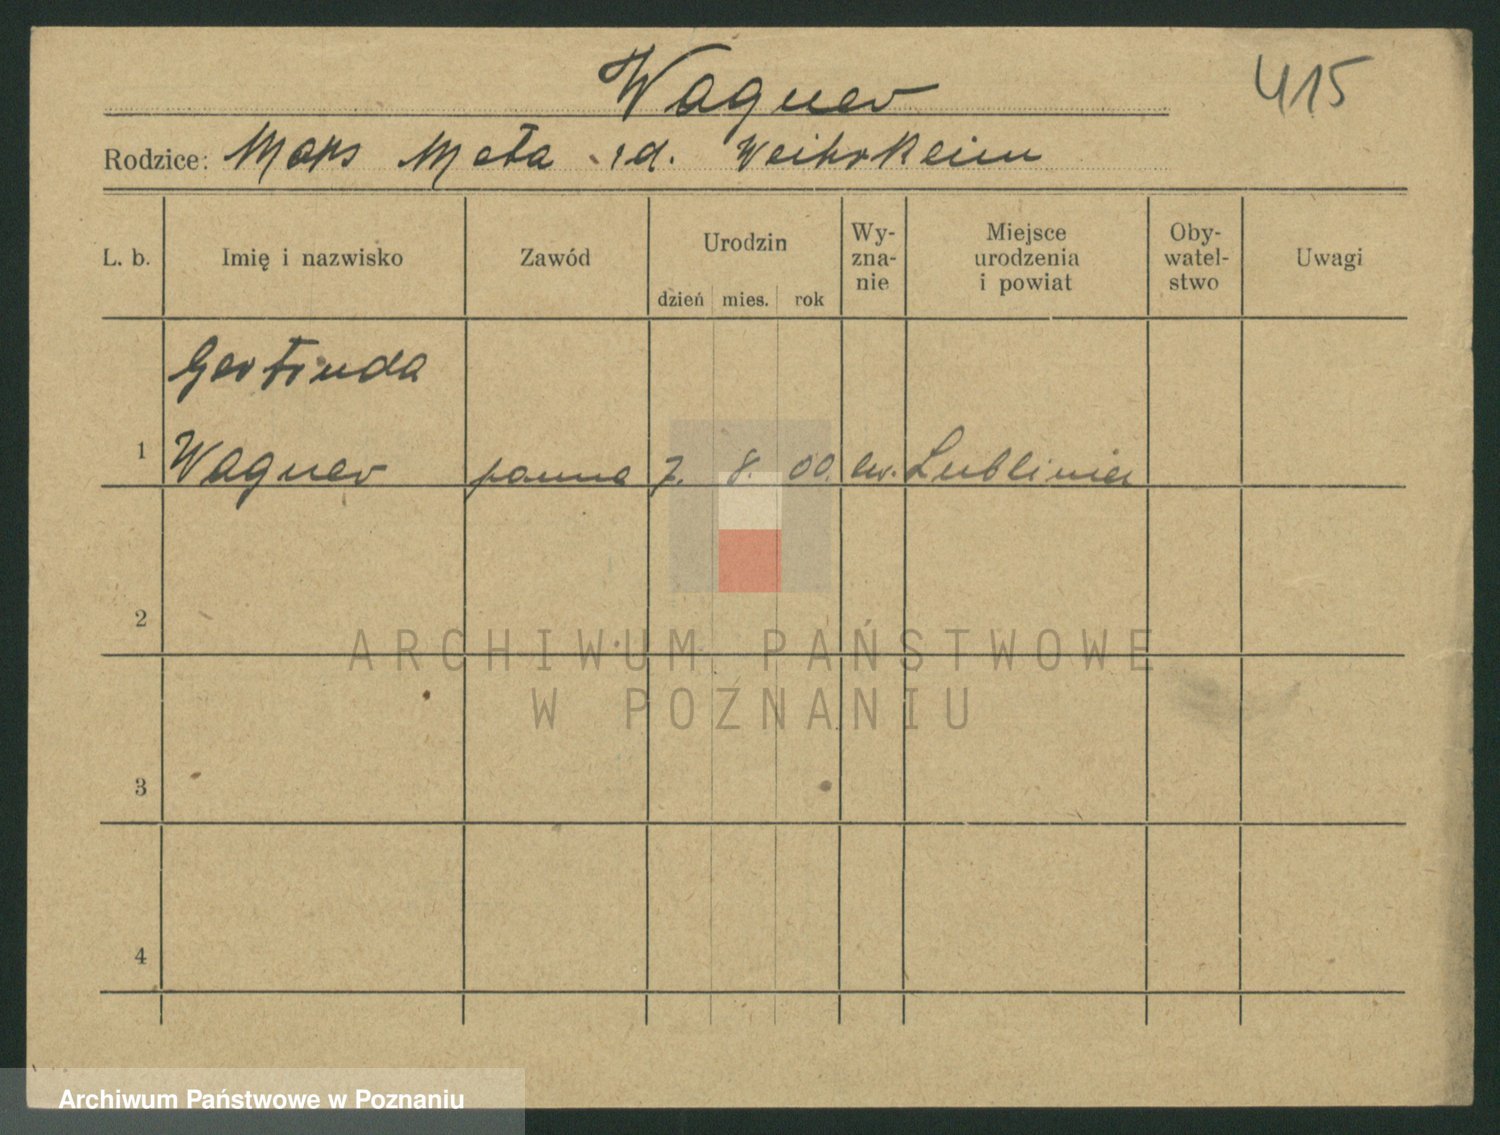 Wagner
415
Rodzice: Maks Meta
L. b. Imię i nazwisko Zawód Urodzin dzień mies. rok Wy-zna-nie Miejsce urodzenia i powiat Oby-watel-stwo Uwagi
Gertruda
1 Wagner panna 7. 8. 00. ew. Lubliniec
2
3
4
ARCHIWUM PAŃSTWOWE
W POZNANIU
Archiwum Państwowe w Poznaniu